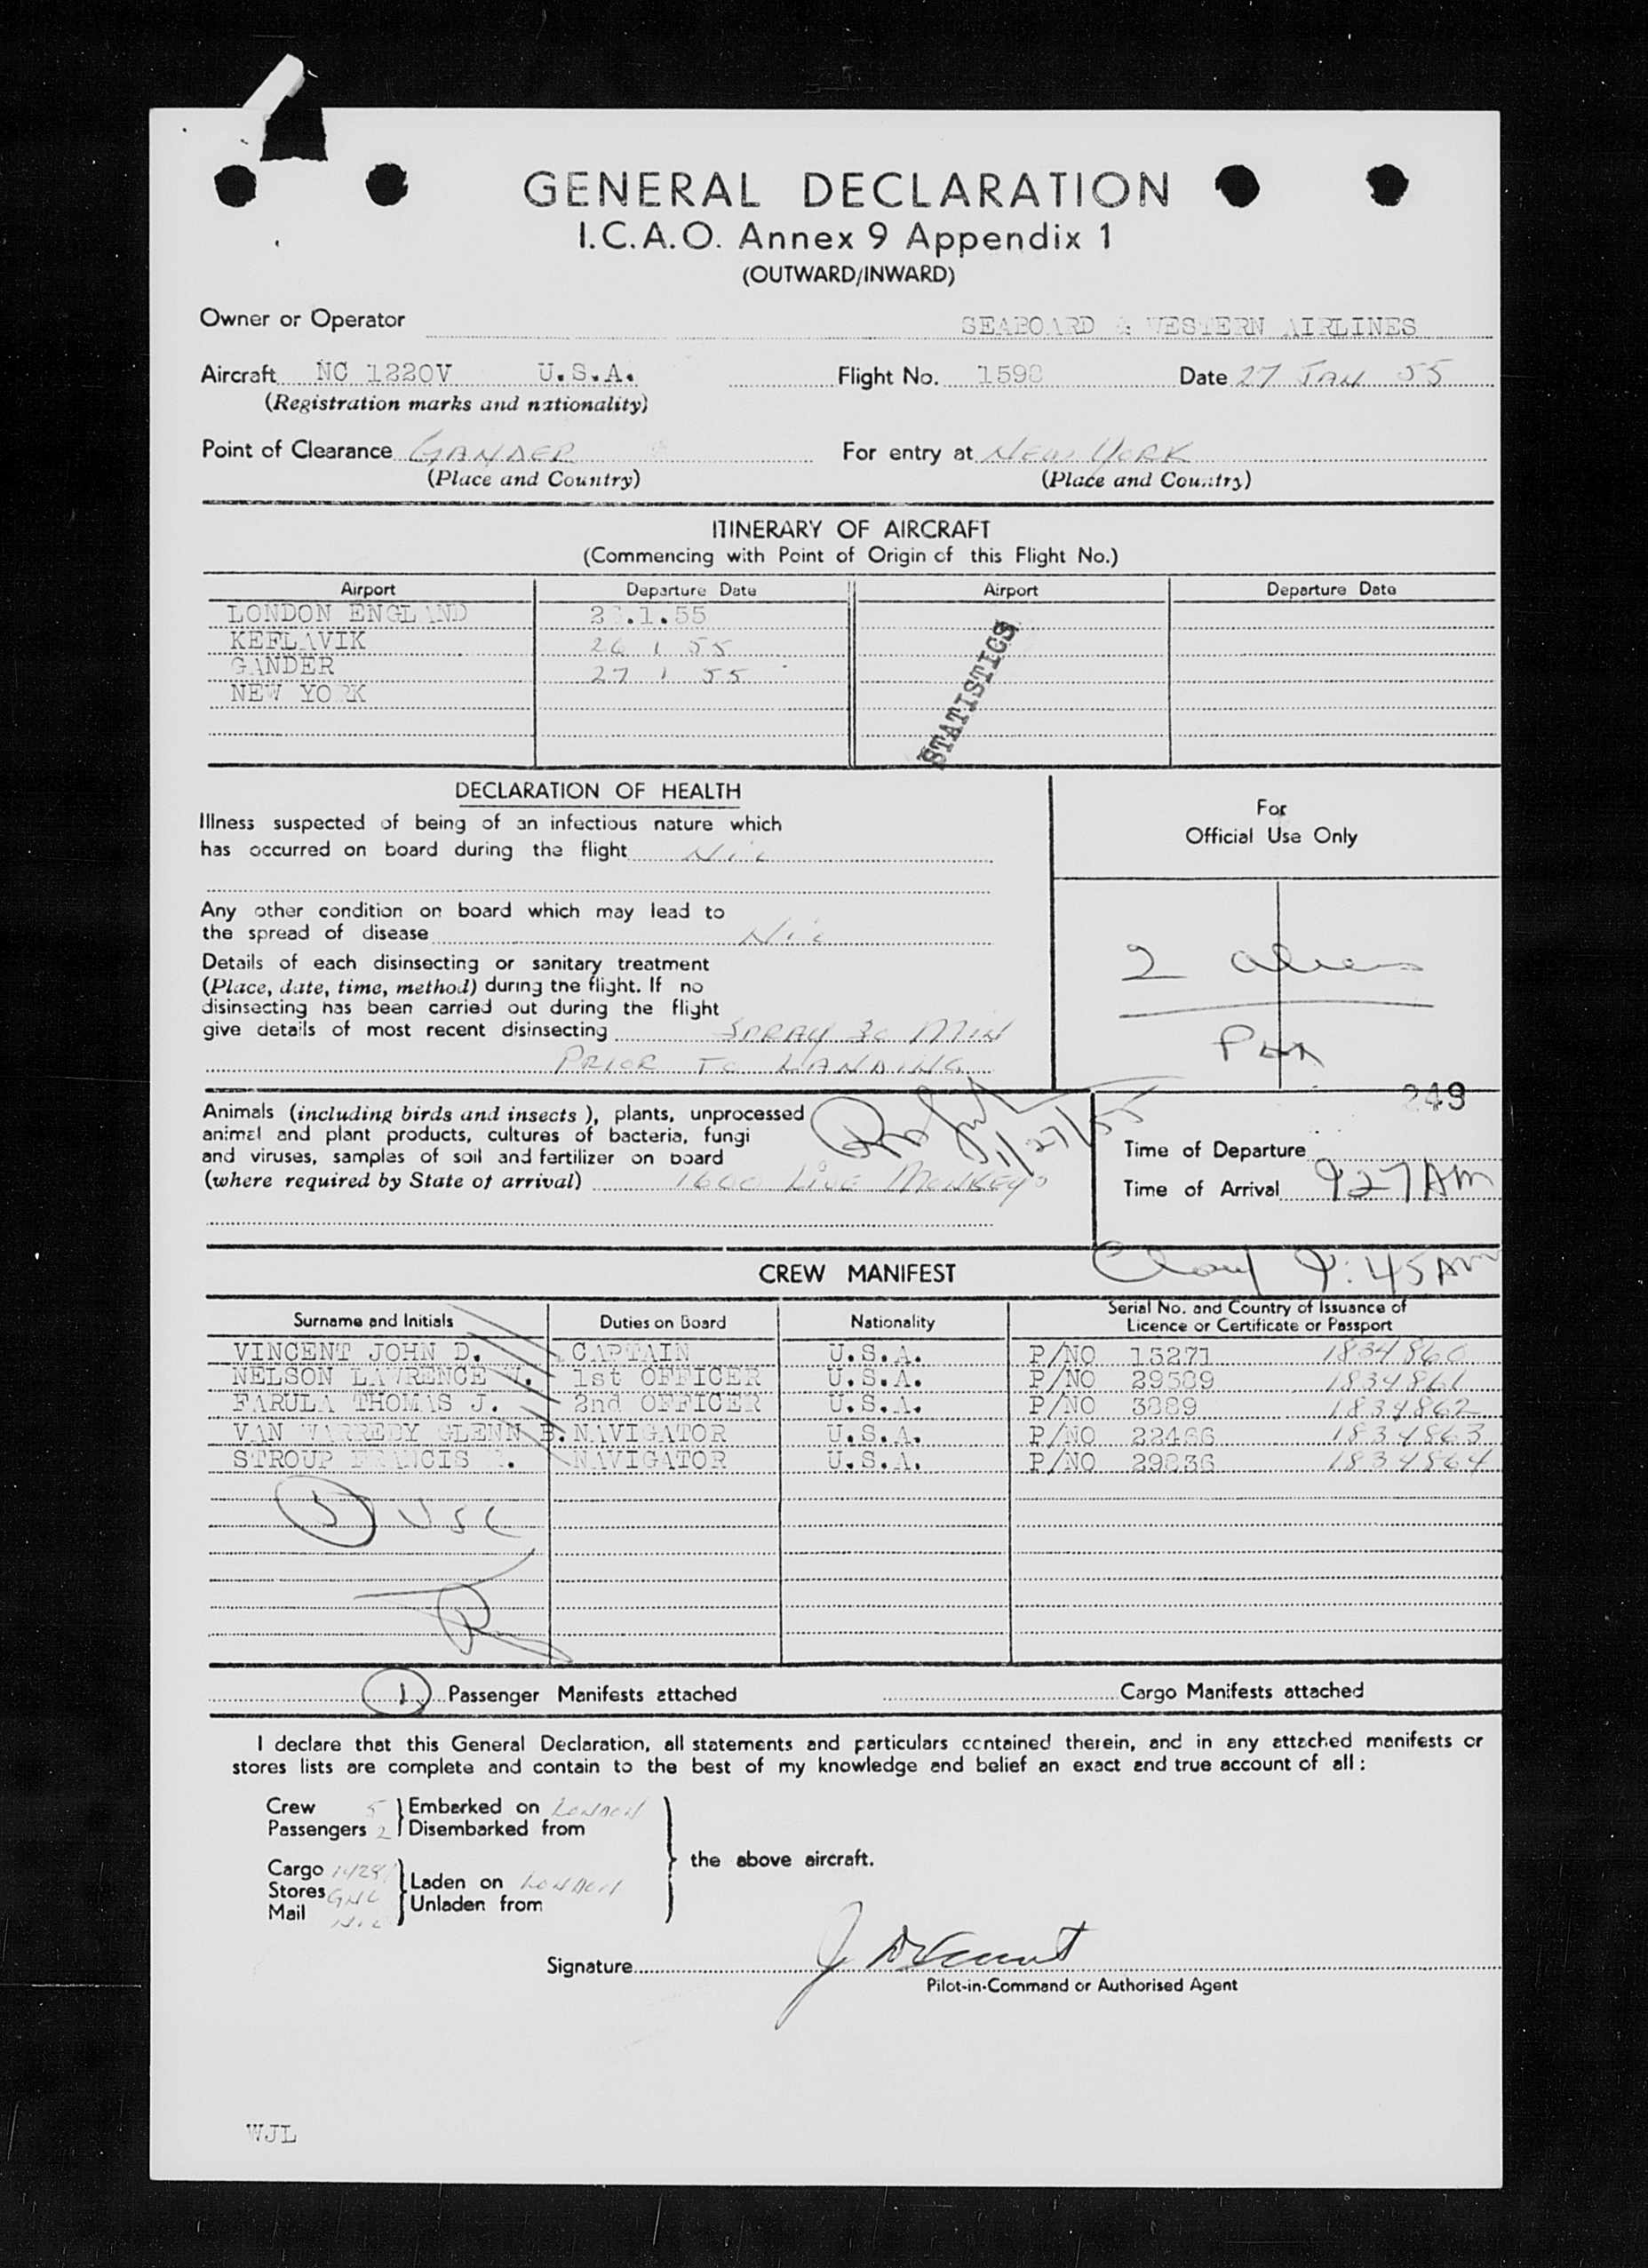 GENERAL DECLARATION
I.C.A.O. Annex 9 Appendix 1
(OUTWARD/INWARD)
Owner or Operator SEABOARD & WESTERN AIRLINES
Aircraft NC 1220V U.S.A. Flight No. 1598 Date 27 JAN 55
(Registration marks and nationality)
Point of Clearance GANDER For entry at NEW YORK
(Place and Country) (Place and Country)
ITINERARY OF AIRCRAFT
(Commencing with Point of Origin of this Flight No.)
Airport Departure Date Airport Departure Date
LONDON ENGLAND .1.55
KEFLAVIK 26 1 55
GANDER 27 1 55
NEW YORK
STATISTICS
DECLARATION OF HEALTH
Illness suspected of being of an infectious nature which
has occurred on board during the flight Nil
Any other condition on board which may lead to
the spread of disease Nil
Details of each disinsecting or sanitary treatment
(Place, date, time, method) during the flight. If no
disinsecting has been carried out during the flight
give details of most recent disinsecting SPRAY 30 MIN
PRIOR TO LANDING
For
Official Use Only
2 aliens
249
Animals (including birds and insects), plants, unprocessed
animal and plant products, cultures of bacteria, fungi
and viruses, samples of soil and fertilizer on board
(where required by State of arrival) 1600 Live Monkeys
1/27/55
Time of Departure
Time of Arrival 927 AM
9:45 AM
CREW MANIFEST
Surname and Initials Duties on Board Nationality Serial No. and Country of Issuance of
Licence or Certificate or Passport
VINCENT JOHN D. CAPTAIN U.S.A. P/NO 15271 1834860
NELSON LAWRENCE W. 1st OFFICER U.S.A. P/NO 29589 1834861
FARULA THOMAS J. 2nd OFFICER U.S.A. P/NO 3889 1834862
VAN GLENN B. NAVIGATOR U.S.A. P/NO 22466 1834863
STROUP FRANCIS NAVIGATOR U.S.A. P/NO 29836 1834864
5 USC
1 Passenger Manifests attached Cargo Manifests attached
I declare that this General Declaration, all statements and particulars contained therein, and in any attached manifests or
stores lists are complete and contain to the best of my knowledge and belief an exact and true account of all:
Crew 5 Embarked on LONDON
Passengers 2 Disembarked from
the above aircraft.
Cargo
Stores Laden on LONDON
Mail Nil Unladen from
Signature J D Vincent
Pilot-in-Command or Authorised Agent
WJL